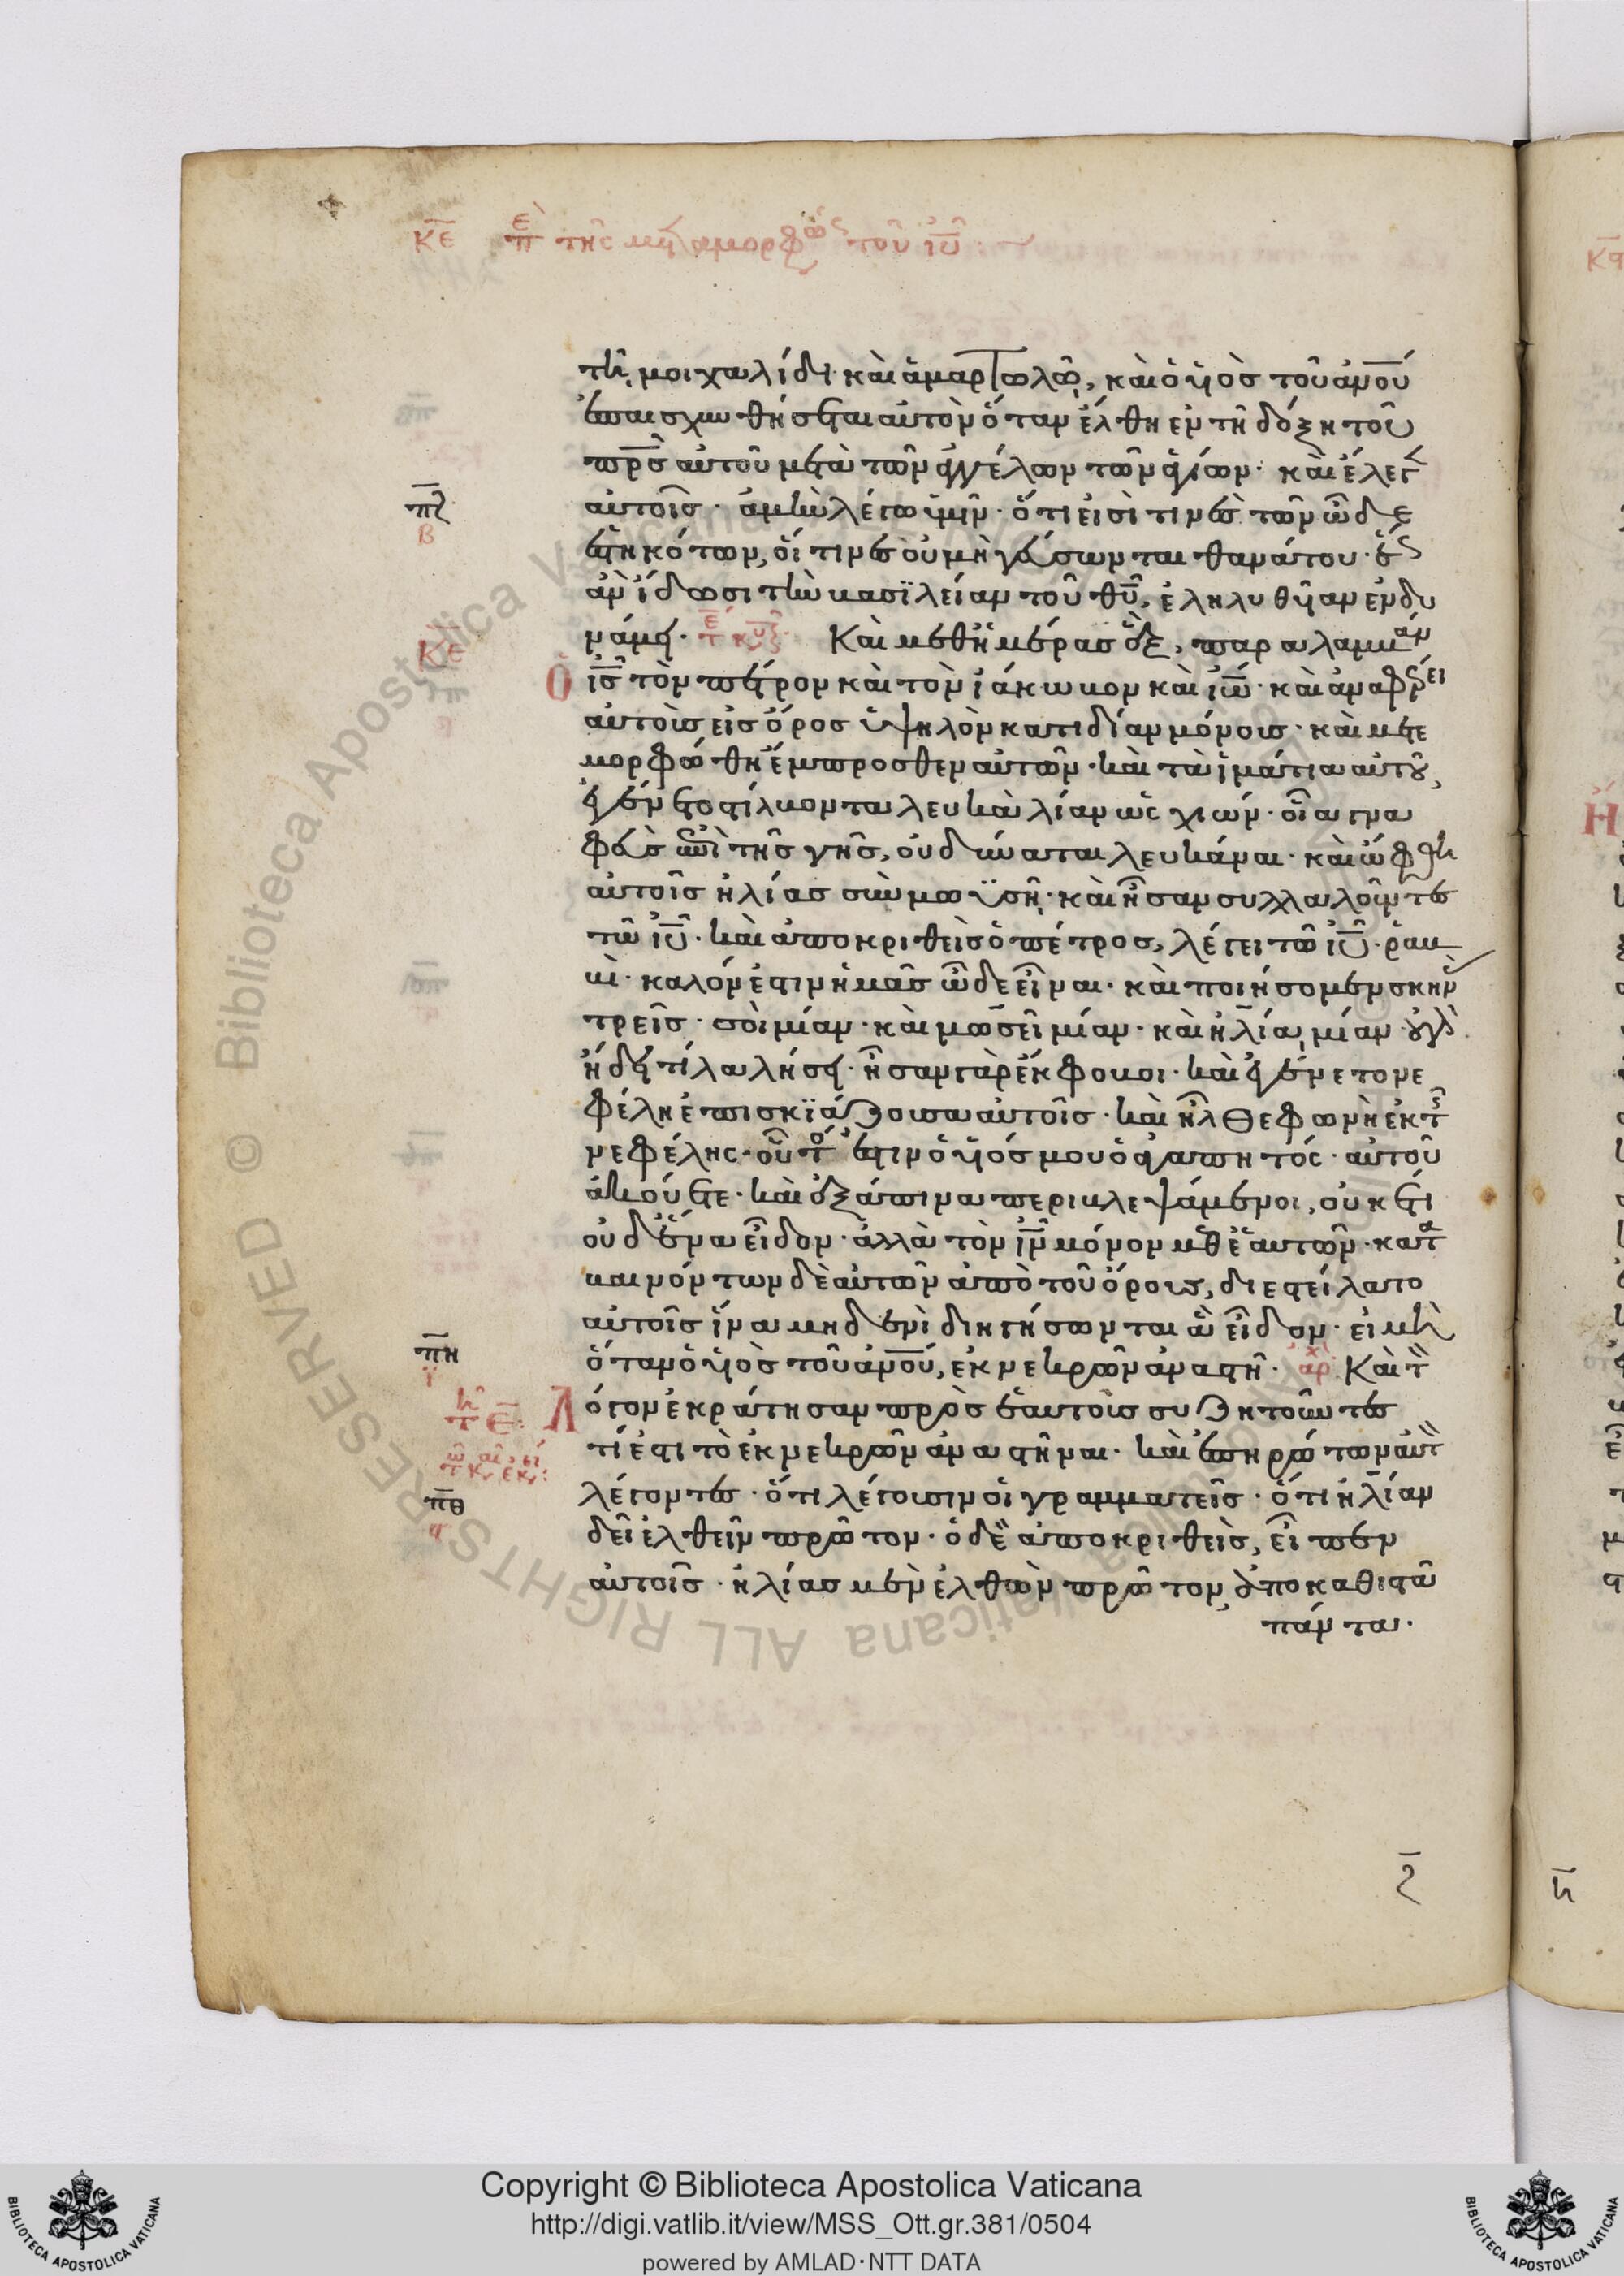 κε πε της μεταμορφώσ τοῦ ιυ
τῆ μοιχαλίδι· καὶ ἁμαρτωλῶ, καὶ ὁ υἱὸσ τοῦ ανου
ἐπαισχυνθήσεται αὐτὸν ὅταν ἔλθη ἐν τῆ δόξη τοῦ
πρσ αὐτοῦ μετὰ τῶν ἀγγέλων τῶν ἁγίων· καὶ ἔλεγ
πζ αὐτοῖσ· ἀμὴν λέγω ὑμῖν· ὅτι εἰσί τινεσ τῶν ὧδε
β
ἑστηκότων, οἵ τινεσ οὐ μὴ γεύσωνται θανάτου· ἕωσ
ἀν ἴδωσι τὴν βασϊλείαν τοῦ θυ, ἐληλυθυῖαν ἐν δυ
κε νάμει· Καὶ μεθ ἡμέρασ ἓξ, παραλαμβάν
Ὁ ισ τὸν πέτρον καὶ τὸν ἰάκωβον καὶ ιω· καὶ ἀναφέρει
αὐτοὺσ εἰσ ὄροσ ὑψηλὸν κατιδίαν μόνουσ· καὶ μετε
μορφώθη ἔμπροσθεν αὐτῶν· καὶ τὰ ἱμάτια αὐτοῦ,
ἐγένετο στίλβοντα λευκὰ λίαν ὡς χιών· οἷα γνα
φεὺσ ἐπὶ τῆσ γῆσ, οὐ δύναται λευκάναι· καὶ ὤφθη
αὐτοῖσ ἡλίασ σὺν μωϋσῆ· καὶ ἦσαν συλλαλοῦντεσ
τῶ ιυ· καὶ ἀποκριθεὶσ ὁ πέτροσ, λέγει τῶ ιυ· ῥαβ
βί· καλόν ἐστιν ἡμᾶσ ὧδε εἶναι· καὶ ποιήσομεν σκην
τρεῖσ· σοὶ μίαν· καὶ μωσεῖ μίαν· καὶ ἡλία μίαν· οὐ γὰρ
ἤδει τί λαλήσει· ἦσαν γὰρ ἔκφοβοι· καὶ ἐγένετο νε
φέλη ἐπισκϊάζουσα αὐτοῖσ· καὶ ἦλθε φωνὴ ἐκ τῆσ
νεφέλης· οὗτοσ ἐστιν ὁ υἱόσ μου ὁ ἀγαπητός· αὐτοῦ
ἀκούετε· καὶ ἐξάπινα περιβλεψάμενοι, οὐκέτι
οὐδένα εἶδον· ἀλλὰ τὸν ιν μόνον μεθ ἑαυτῶν· κατα
βαινόντων δὲ αὐτῶν ἀπὸ τοῦ ὄρουσ, διεστείλατο
αὐτοῖσ ἵνα μηδενὶ διηγήσωνται ἃ εἶδον· εἰ μὴ
πη ὅταν ὁ υἱὸσ τοῦ ανου, ἐκ νεκρῶν ἀναστῆ· αρχ Καὶ τὸν
ι
Λόγον ἐκράτησαν πρὸσ ἑαυτοὺσ συζητοῦντεσ
τί ἐστι τὸ ἐκ νεκρῶν ἀναστῆναι· καὶ ἐπηρώτων αὐτὸν
πθ λέγοντεσ· ὅτι λέγουσιν οἱ γραμματεῖσ· ὅτι ἡλίαν
δεῖ ἐλθεῖν πρῶτον· ὁ δὲ ἀποκριθεὶσ, εἶπεν
αὐτοῖσ· ἡλίασ μὲν ἐλθὼν πρῶτον, ἀποκαθιστᾶ
πάντα·
Copyright © Biblioteca Apostolica Vaticana
http://digi.vatlib.it/view/MSS_Ott.gr.381/0504
powered by AMLAD·NTT DATA